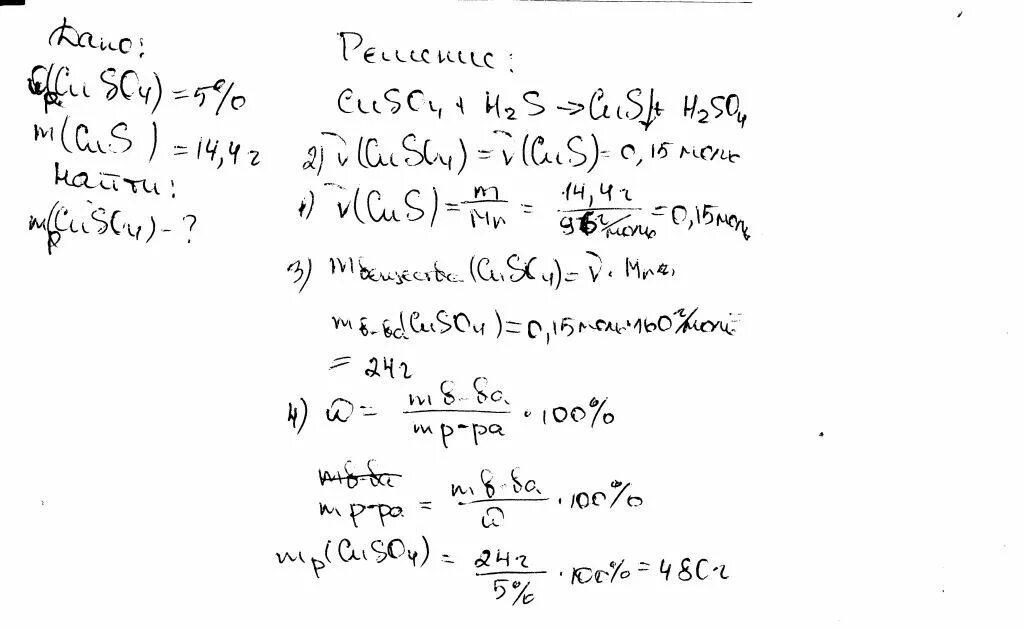 Дано:
ω р (CuSO4) = 5%
m(CuS) = 14,4 г
Найти:
m р (CuSO4) - ?
Решение:
CuSO4 + H2S → CuS↓ + H2SO4
2) ν(CuSO4) = ν(CuS) = 0,15 моль
1) ν(CuS) = m/Mr = 14,4 г/96 г/моль = 0,15 моль
3) m вещества (CuSO4) = ν · Mr
m в-ва (CuSO4) = 0,15 моль · 160 г/моль =
= 24 г
4) ω = m в-ва/m р-ра · 100%
m в-ва
m р-ра = m в-ва/ω · 100%
m р (CuSO4) = 24 г/5% · 100% = 480 г